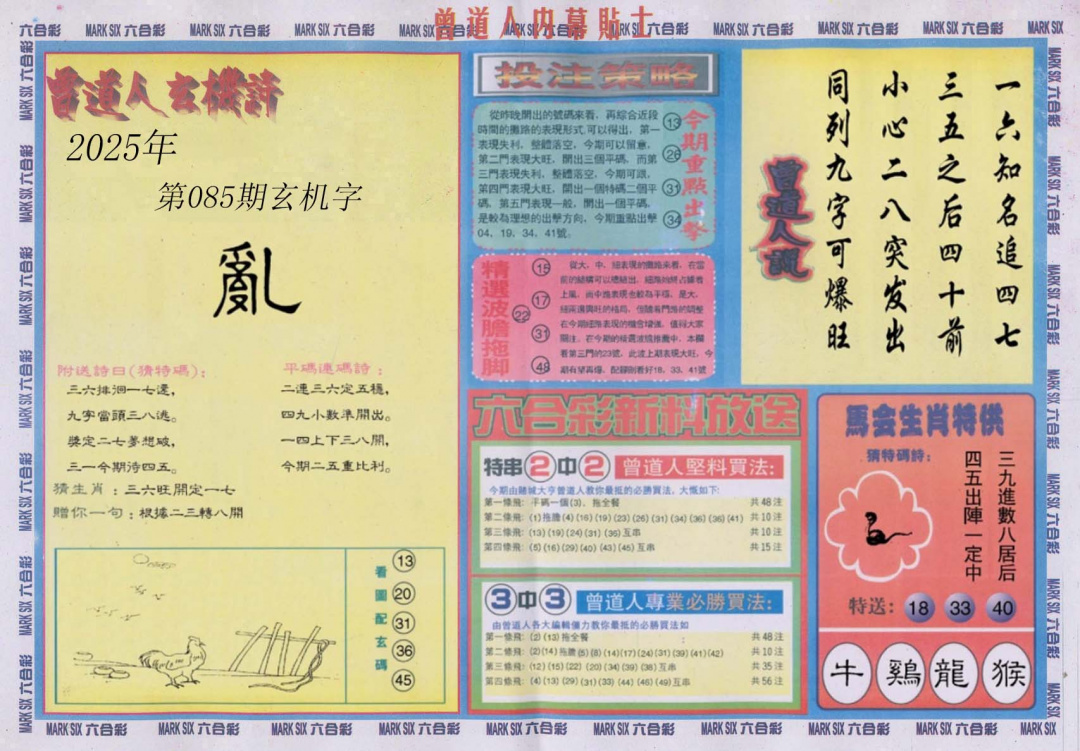 曾道人内幕貼士
六合彩 MARK SIX 六合彩 MARK SIX 六合彩 MARK SIX 六合彩 MARK SIX 六合彩 MARK SIX 六合彩 MARK SIX 六合彩 MARK SIX 六合彩 MARK SIX 六合彩 MARK SIX
曾道人玄機詩
2025年
第085期玄机字
亂
附送詩曰(猜特碼):
三六排徊一七邊,
九字當頭三八逃。
獎定二七夢想破,
三一今期待四五。
平碼連碼詩:
二連三六定五穩,
四九小數準開出。
一四上下三八開,
今期二五重比利。
猜生肖:三六旺開定一七
贈你一句:根據二三轉八開
看圖配玄碼
13
20
31
36
45
投注策略
從昨晚開出的號碼來看,再綜合近段
時間的攤路的表現形式,可以得出,第一
表現失利,整體落空,今期可以留意,
第二門表現大旺,開出三個平碼,而第
三門表現失利,整體落空,今期可跟,
第四門表現大旺,開出一個特碼二個平
碼,第五門表現一般,開出一個平碼,
是較為理想的出擊方向,今期重點出擊
04,19,34,41號。
13
26
31
34
今期重點出擊
精選波膽拖脚
15
17
22
31
48
看第三門的23號,此波上期表現大旺,今
期有望再爆,配腳則看好18,33,41號
六合彩新料放送
特串2中2 曾道人堅料買法:
今期由賭城大亨曾道人教你最抵的必勝買法,大慨如下:
第一條飛:平碼一個(3),拖全餐 共48注
第二條飛:(1)拖膽(4)(16)(19)(23)(26)(31)(34)(36)(36)(41) 共10注
第三條飛:(13)(19)(24)(31)(36)互串 共10注
第四條飛:(5)(16)(29)(40)(43)(45)互串 共15注
3中3 曾道人專業必勝買法:
由曾道人各大編輯僅力教你最抵的必勝買法如
第一條飛:(2)(13)拖全餐 : 共48注
第二條飛:(2)(14)拖膽(5)(8)(14)(17)(24)(31)(39)(41)(42) 共10注
第三條飛:(12)(15)(22)(20)(34)(39)(38)互串 共35注
第四條飛:(4)(13)(29)(31)(33)(44)(46)(49)互串 共56注
曾道人説
一六知名追四七
三五之后四十前
小心二八突发出
同列九字可爆旺
馬会生肖特供
猜特碼詩:
三九進數八居后
四五出陣一定中
特送: 18 33 40
牛 鷄 龍 猴
MARK SIX 六合彩 MARK SIX 六合彩 MARK SIX 六合彩 MARK SIX 六合彩 MARK SIX 六合彩 MARK SIX 六合彩 MARK SIX 六合彩 MARK SIX 六合彩 MARK SIX 六合彩 MARK SIX